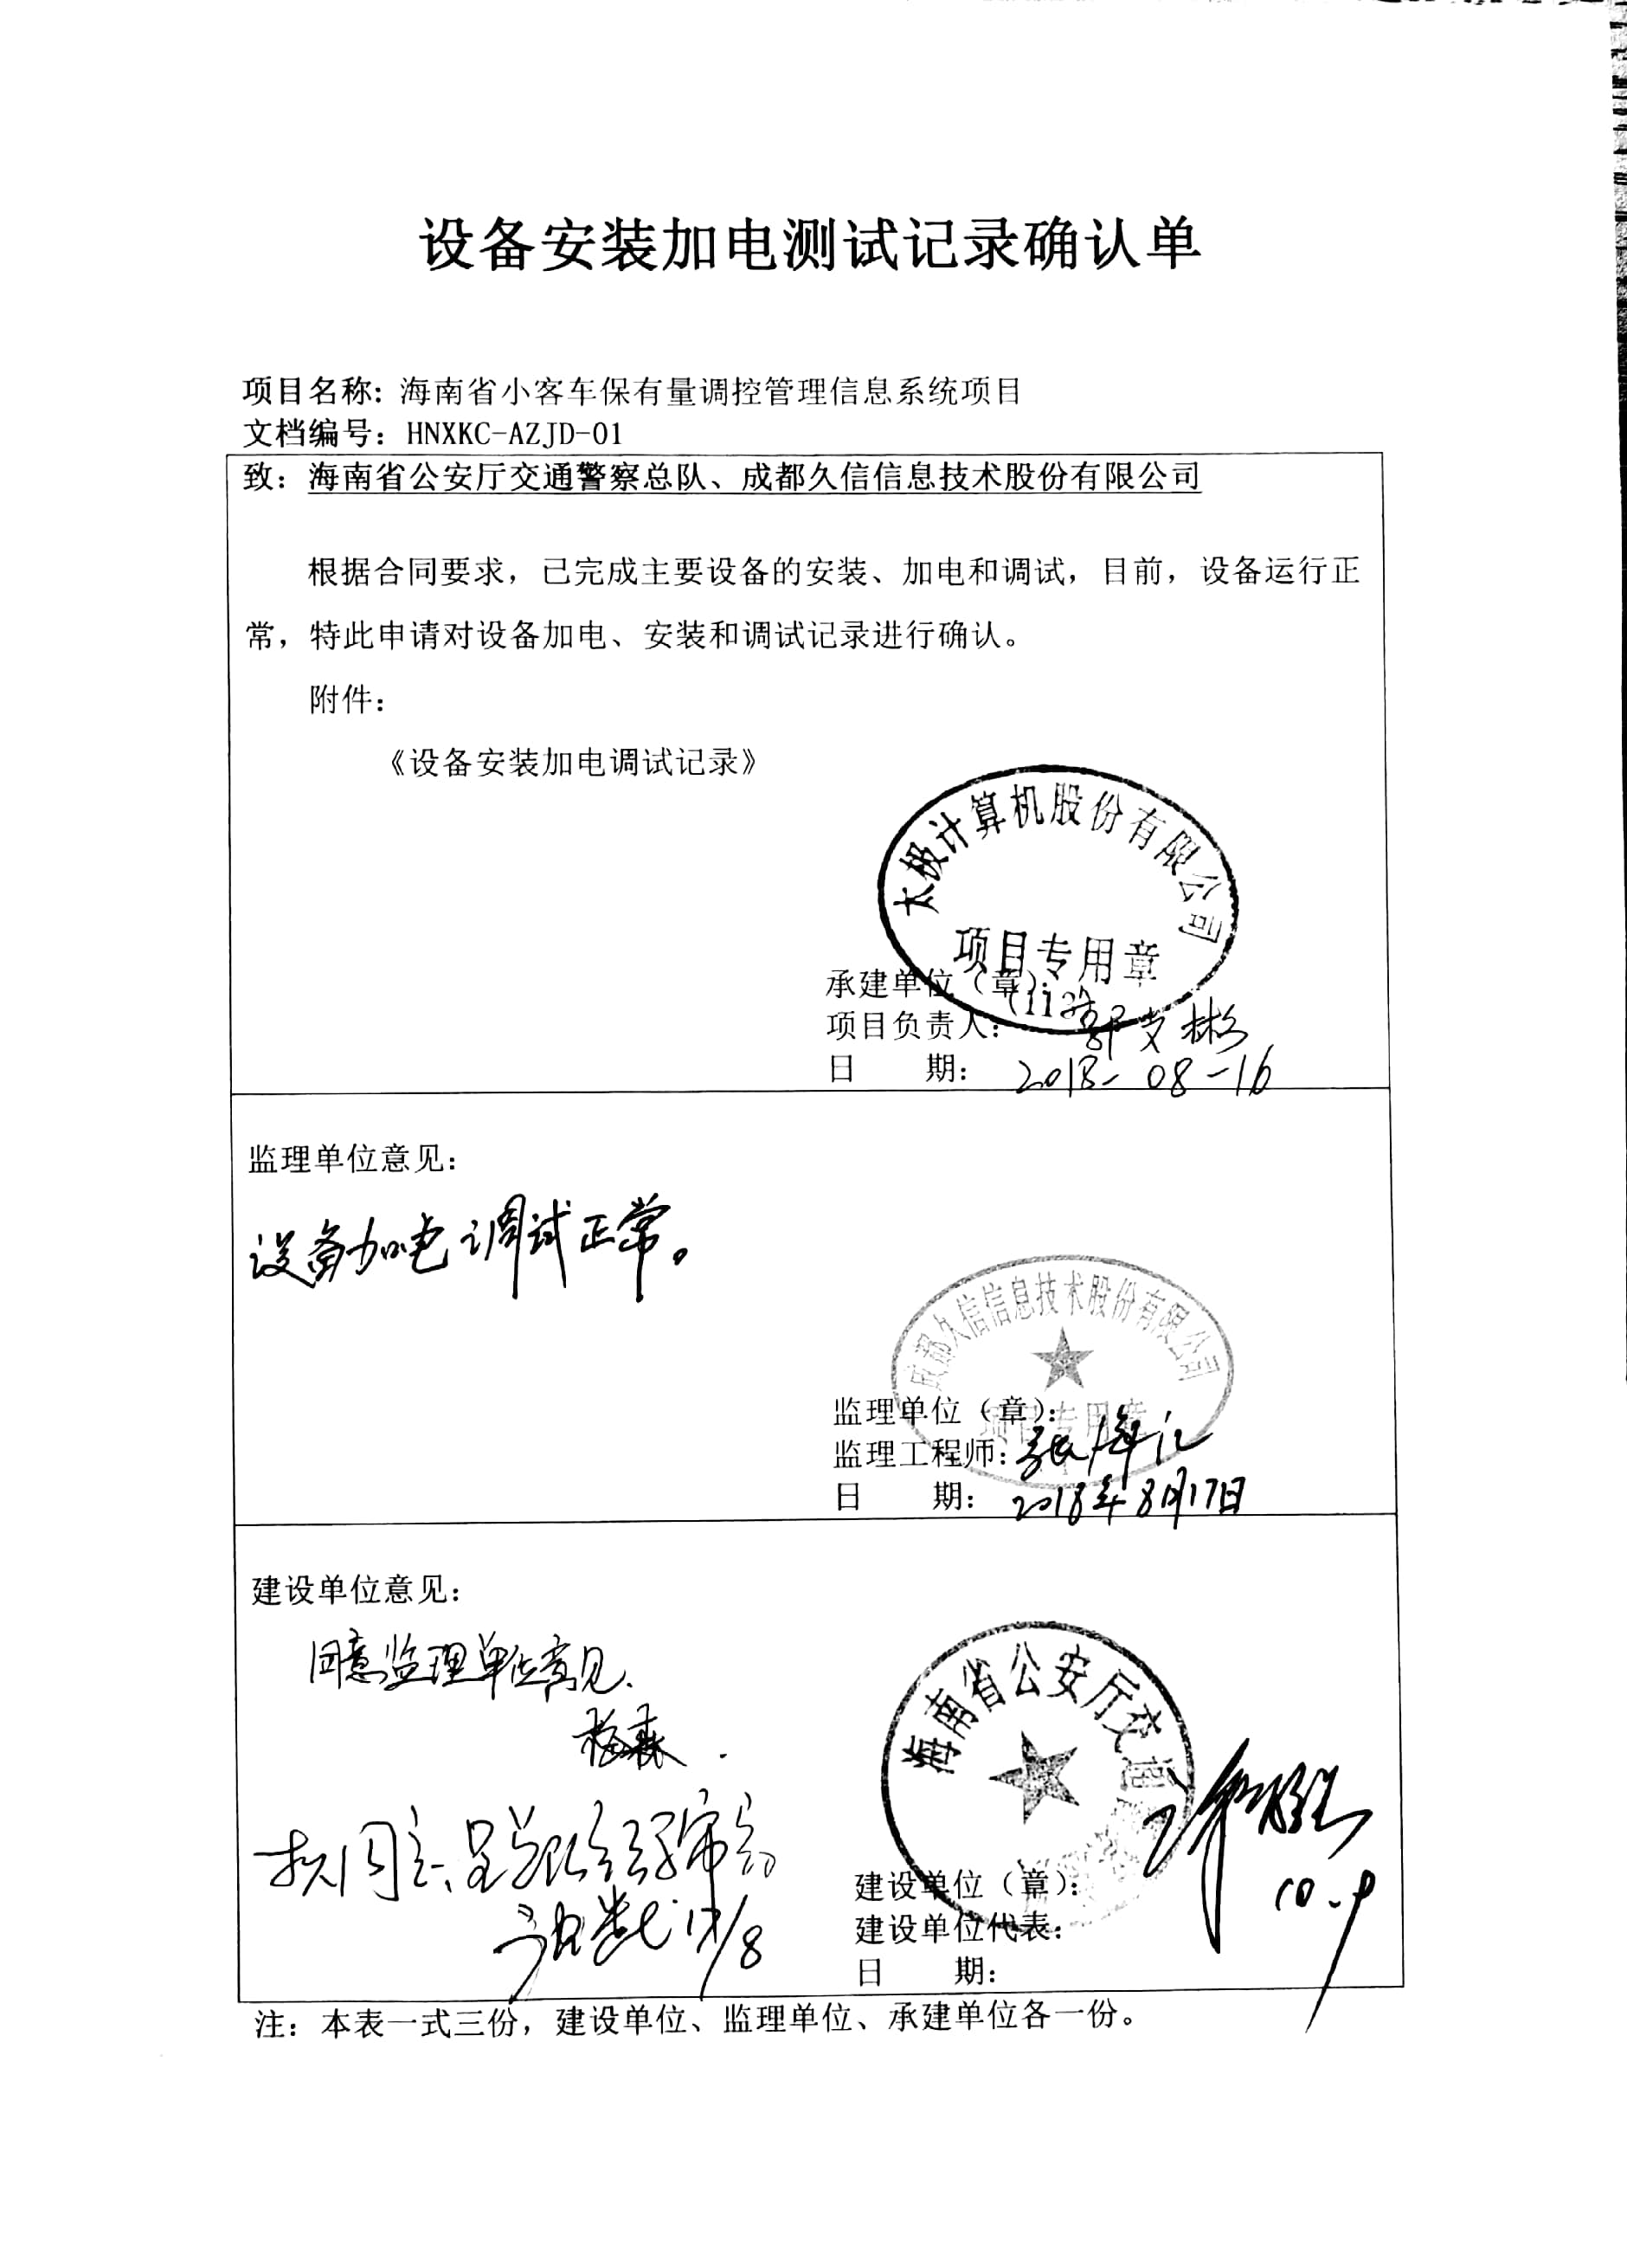 设备安装加电测试记录确认单
项目名称：海南省小客车保有量调控管理信息系统项目
文档编号：HNXKC-AZJD-01
致：海南省公安厅交通警察总队、成都久信信息技术股份有限公司
根据合同要求，已完成主要设备的安装、加电和调试，目前，设备运行正
常，特此申请对设备加电、安装和调试记录进行确认。
附件：
《设备安装加电调试记录》
太极计算机股份有限公司
项目专用章
承建单位（章）：
项目负责人：
日 期：2018-08-16
监理单位意见：
设备加电调试正常。
成都久信信息技术股份有限公司
项目专用章
监理单位（章）：
监理工程师：
日 期：2018年8月17日
建设单位意见：
同意监理单位意见.
海南省公安厅交通
17/8
10.9
建设单位（章）：
建设单位代表：
日 期：
注：本表一式三份，建设单位、监理单位、承建单位各一份。